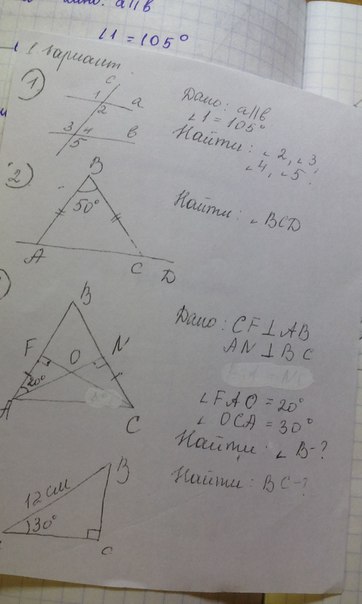 Дано: a||b
∠1=105°
1 вариант.
1)
c
1
a
2
3 4
b
5
Дано: a||b
∠1=105°
Найти: ∠2, ∠3,
∠4, ∠5.
2)
B
50°
A
C
D
Найти: ∠BCD
B
F
O
N
20°
A
C
Дано: CF⊥AB
AN⊥BC
∠FAO=20°
∠OCA=30°
Найти: ∠B-?
B
12 см
30°
C
Найти: BC-?